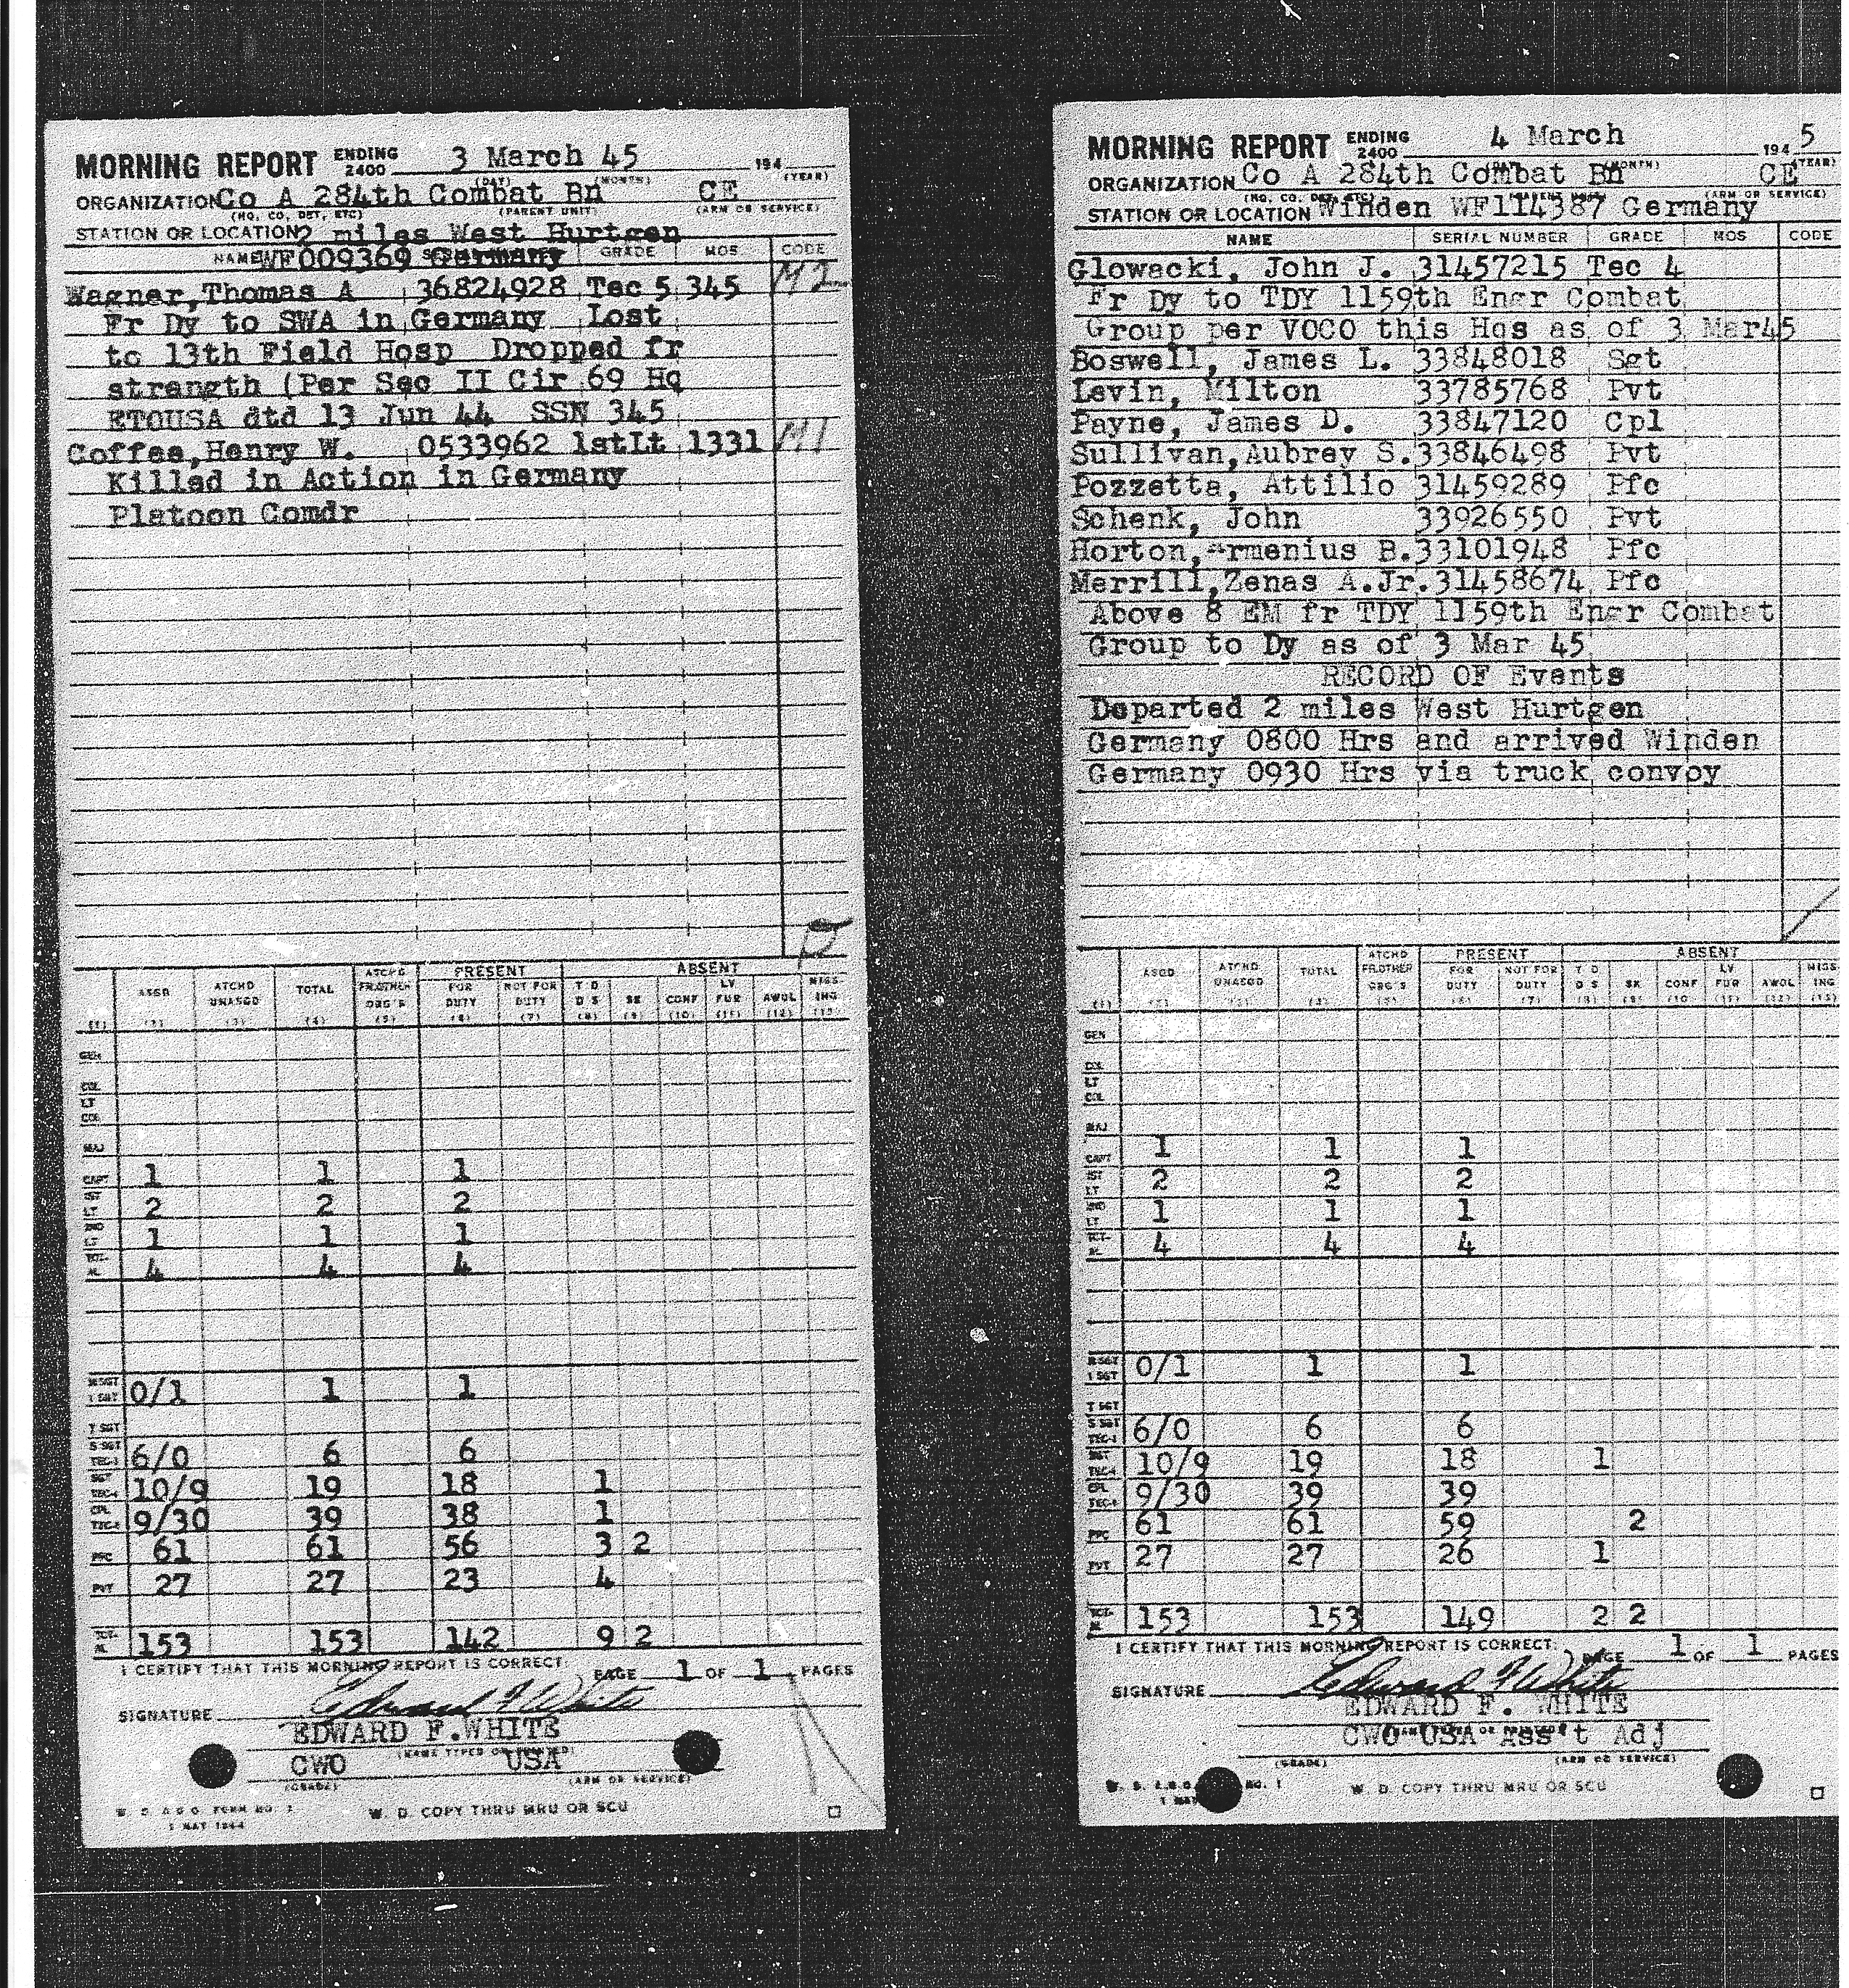 MORNING REPORT ENDING 2400 3 March 45 194
(DAY) (MONTH) (YEAR)
ORGANIZATION Co A 284th Combat Bn CE
(HQ, CO, DET, ETC) (PARENT UNIT) (ARM OR SERVICE)
STATION OR LOCATION 2 miles West Hurtgen
NAME WF009369 Germany GRADE MOS CODE
Wagner, Thomas A 36824928 Tec 5 345 M2
Fr Dy to SWA in Germany Lost
to 13th Field Hosp Dropped fr
strength (Per Sec II Cir 69 Hq
ETOUSA dtd 13 Jun 44 SSN 345
Coffee, Henry W. 0533962 1stLt 1331 M1
Killed in Action in Germany
Platoon Comdr
PRESENT ABSENT
ASGD ATCHD UNASGD TOTAL ATCHD FR.OTHER ORG'S FOR DUTY NOT FOR DUTY T D D S SK CONF LV FUR AWOL MISSING
(1) (2) (3) (4) (5) (6) (7) (8) (9) (10) (11) (12) (13)
GEN
COL
LT COL
MAJ
CAPT 1 1 1
1ST LT 2 2 2
2ND LT 1 1 1
TOTAL 4 4 4
M SGT 1 SGT 0/1 1 1
T SGT
S SGT TEC-3 6/0 6 6
SGT TEC-4 10/9 19 18 1
CPL TEC-5 9/30 39 38 1
PFC 61 61 56 3 2
PVT 27 27 23 4
TOTAL 153 153 142 9 2
I CERTIFY THAT THIS MORNING REPORT IS CORRECT. PAGE 1 OF 1 PAGES
SIGNATURE Edward F White
EDWARD F.WHITE
(NAME TYPED OR PRINTED)
CWO USA
(GRADE) (ARM OR SERVICE)
W. D. A.G.O. FORM NO. 1
1 MAY 1944
W. D. COPY THRU MRU OR SCU
MORNING REPORT ENDING 2400 4 March 194 5
(DAY) (MONTH) (YEAR)
ORGANIZATION Co A 284th Combat Bn CE
(HQ, CO, DET, ETC) (PARENT UNIT) (ARM OR SERVICE)
STATION OR LOCATION Winden WF114387 Germany
NAME SERIAL NUMBER GRADE MOS CODE
Glowacki, John J. 31457215 Tec 4
Fr Dy to TDY 1159th Engr Combat
Group per VOCO this Hqs as of 3 Mar45
Boswell, James L. 33848018 Sgt
Levin, Milton 33785768 Pvt
Payne, James D. 33847120 Cpl
Sullivan, Aubrey S. 33846498 Pvt
Pozzetta, Attilio 31459289 Pfc
Schenk, John 33926550 Pvt
Horton, Armenius B. 33101948 Pfc
Merrill, Zenas A.Jr. 31458674 Pfc
Above 8 EM fr TDY 1159th Engr Combat
Group to Dy as of 3 Mar 45
RECORD OF Events
Departed 2 miles West Hurtgen
Germany 0800 Hrs and arrived Winden
Germany 0930 Hrs via truck convoy
PRESENT ABSENT
ASGD ATCHD UNASGD TOTAL ATCHD FR.OTHER ORG'S FOR DUTY NOT FOR DUTY T D D S SK CONF LV FUR AWOL MISSING
(1) (2) (3) (4) (5) (6) (7) (8) (9) (10) (11) (12) (13)
GEN
COL
LT COL
MAJ
CAPT 1 1 1
1ST LT 2 2 2
2ND LT 1 1 1
TOTAL 4 4 4
M SGT 1 SGT 0/1 1 1
T SGT
S SGT TEC-3 6/0 6 6
SGT TEC-4 10/9 19 18 1
CPL TEC-5 9/30 39 39
PFC 61 61 59 2
PVT 27 27 26 1
TOTAL 153 153 149 2 2
I CERTIFY THAT THIS MORNING REPORT IS CORRECT. PAGE 1 OF 1 PAGES
SIGNATURE Edward F White
EDWARD F. WHITE
CWO USA Ass't Adj
(GRADE) (ARM OR SERVICE)
W. D. A.G.O. NO. 1
1 MAY
W. D. COPY THRU MRU OR SCU